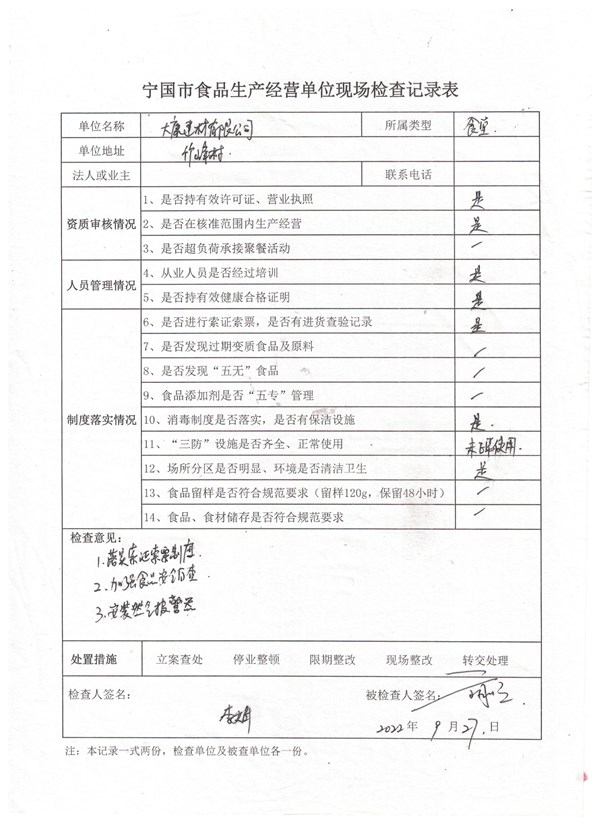 宁国市食品生产经营单位现场检查记录表
单位名称 大康建材有限公司 所属类型 食堂
单位地址 竹峰村
法人或业主 联系电话
资质审核情况
1、是否持有效许可证、营业执照 是
2、是否在核准范围内生产经营 是
3、是否超负荷承接聚餐活动 /
人员管理情况
4、从业人员是否经过培训 是
5、是否持有效健康合格证明 是
制度落实情况
6、是否进行索证索票，是否有进货查验记录 是
7、是否发现过期变质食品及原料 /
8、是否发现“五无”食品 /
9、食品添加剂是否“五专”管理 /
10、消毒制度是否落实，是否有保洁设施 是.
11、“三防”设施是否齐全、正常使用 未正常使用.
12、场所分区是否明显、环境是否清洁卫生 是
13、食品留样是否符合规范要求（留样120g，保留48小时） /
14、食品、食材储存是否符合规范要求 /
检查意见：
1.落实索证索票制度.
2.加强食品安全自查
3.安装燃气报警器
处置措施 立案查处 停业整顿 限期整改 现场整改 转交处理
检查人签名： 被检查人签名：
2022年 9月27日
注：本记录一式两份，检查单位及被查单位各一份。